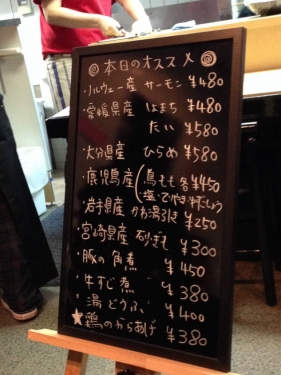 本日のオススメ
・ノルウェー産 サーモン ¥480
・愛媛県産 はまち ¥480
たい ¥580
・大分県産 ひらめ ¥580
・鹿児島産 鳥もも各 ¥450
塩・てりやき・
・岩手県産 かわ湯引き ¥250
・宮崎県産 砂ぎも ¥300
・豚の角煮 ¥450
・牛すじ煮 ¥380
・湯どうふ ¥400
★鶏のからあげ ¥380